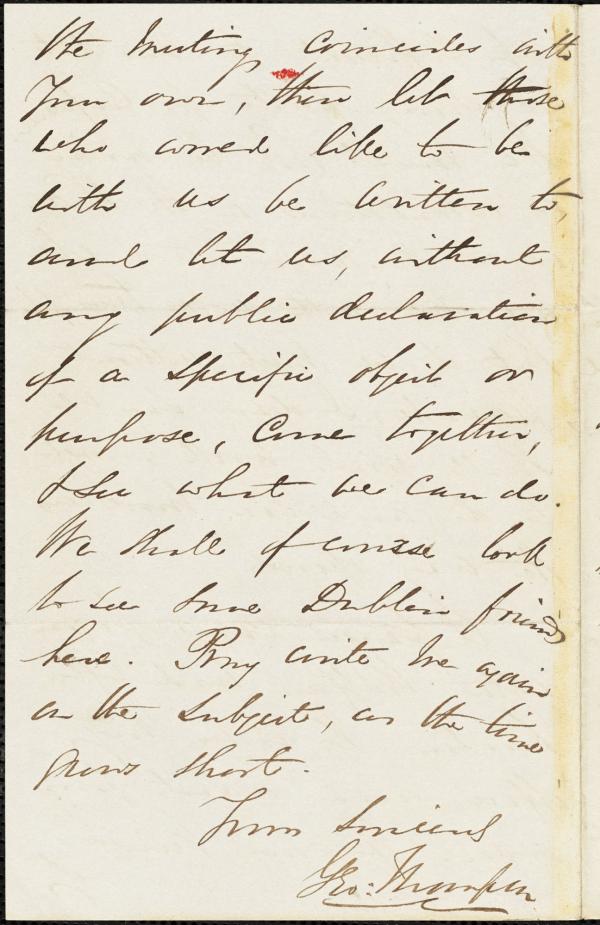 the meeting, coincides with
your own, then let those
who would like to be
with us be written to,
and let us, without
any public declaration
of a specific object or
purpose, come together,
& see what we can do.
We shall of course look
to see some Dublin friends
here. Pray write me again
on the subject, as the time
grows short.
Yours sincerely
Geo: Thompson